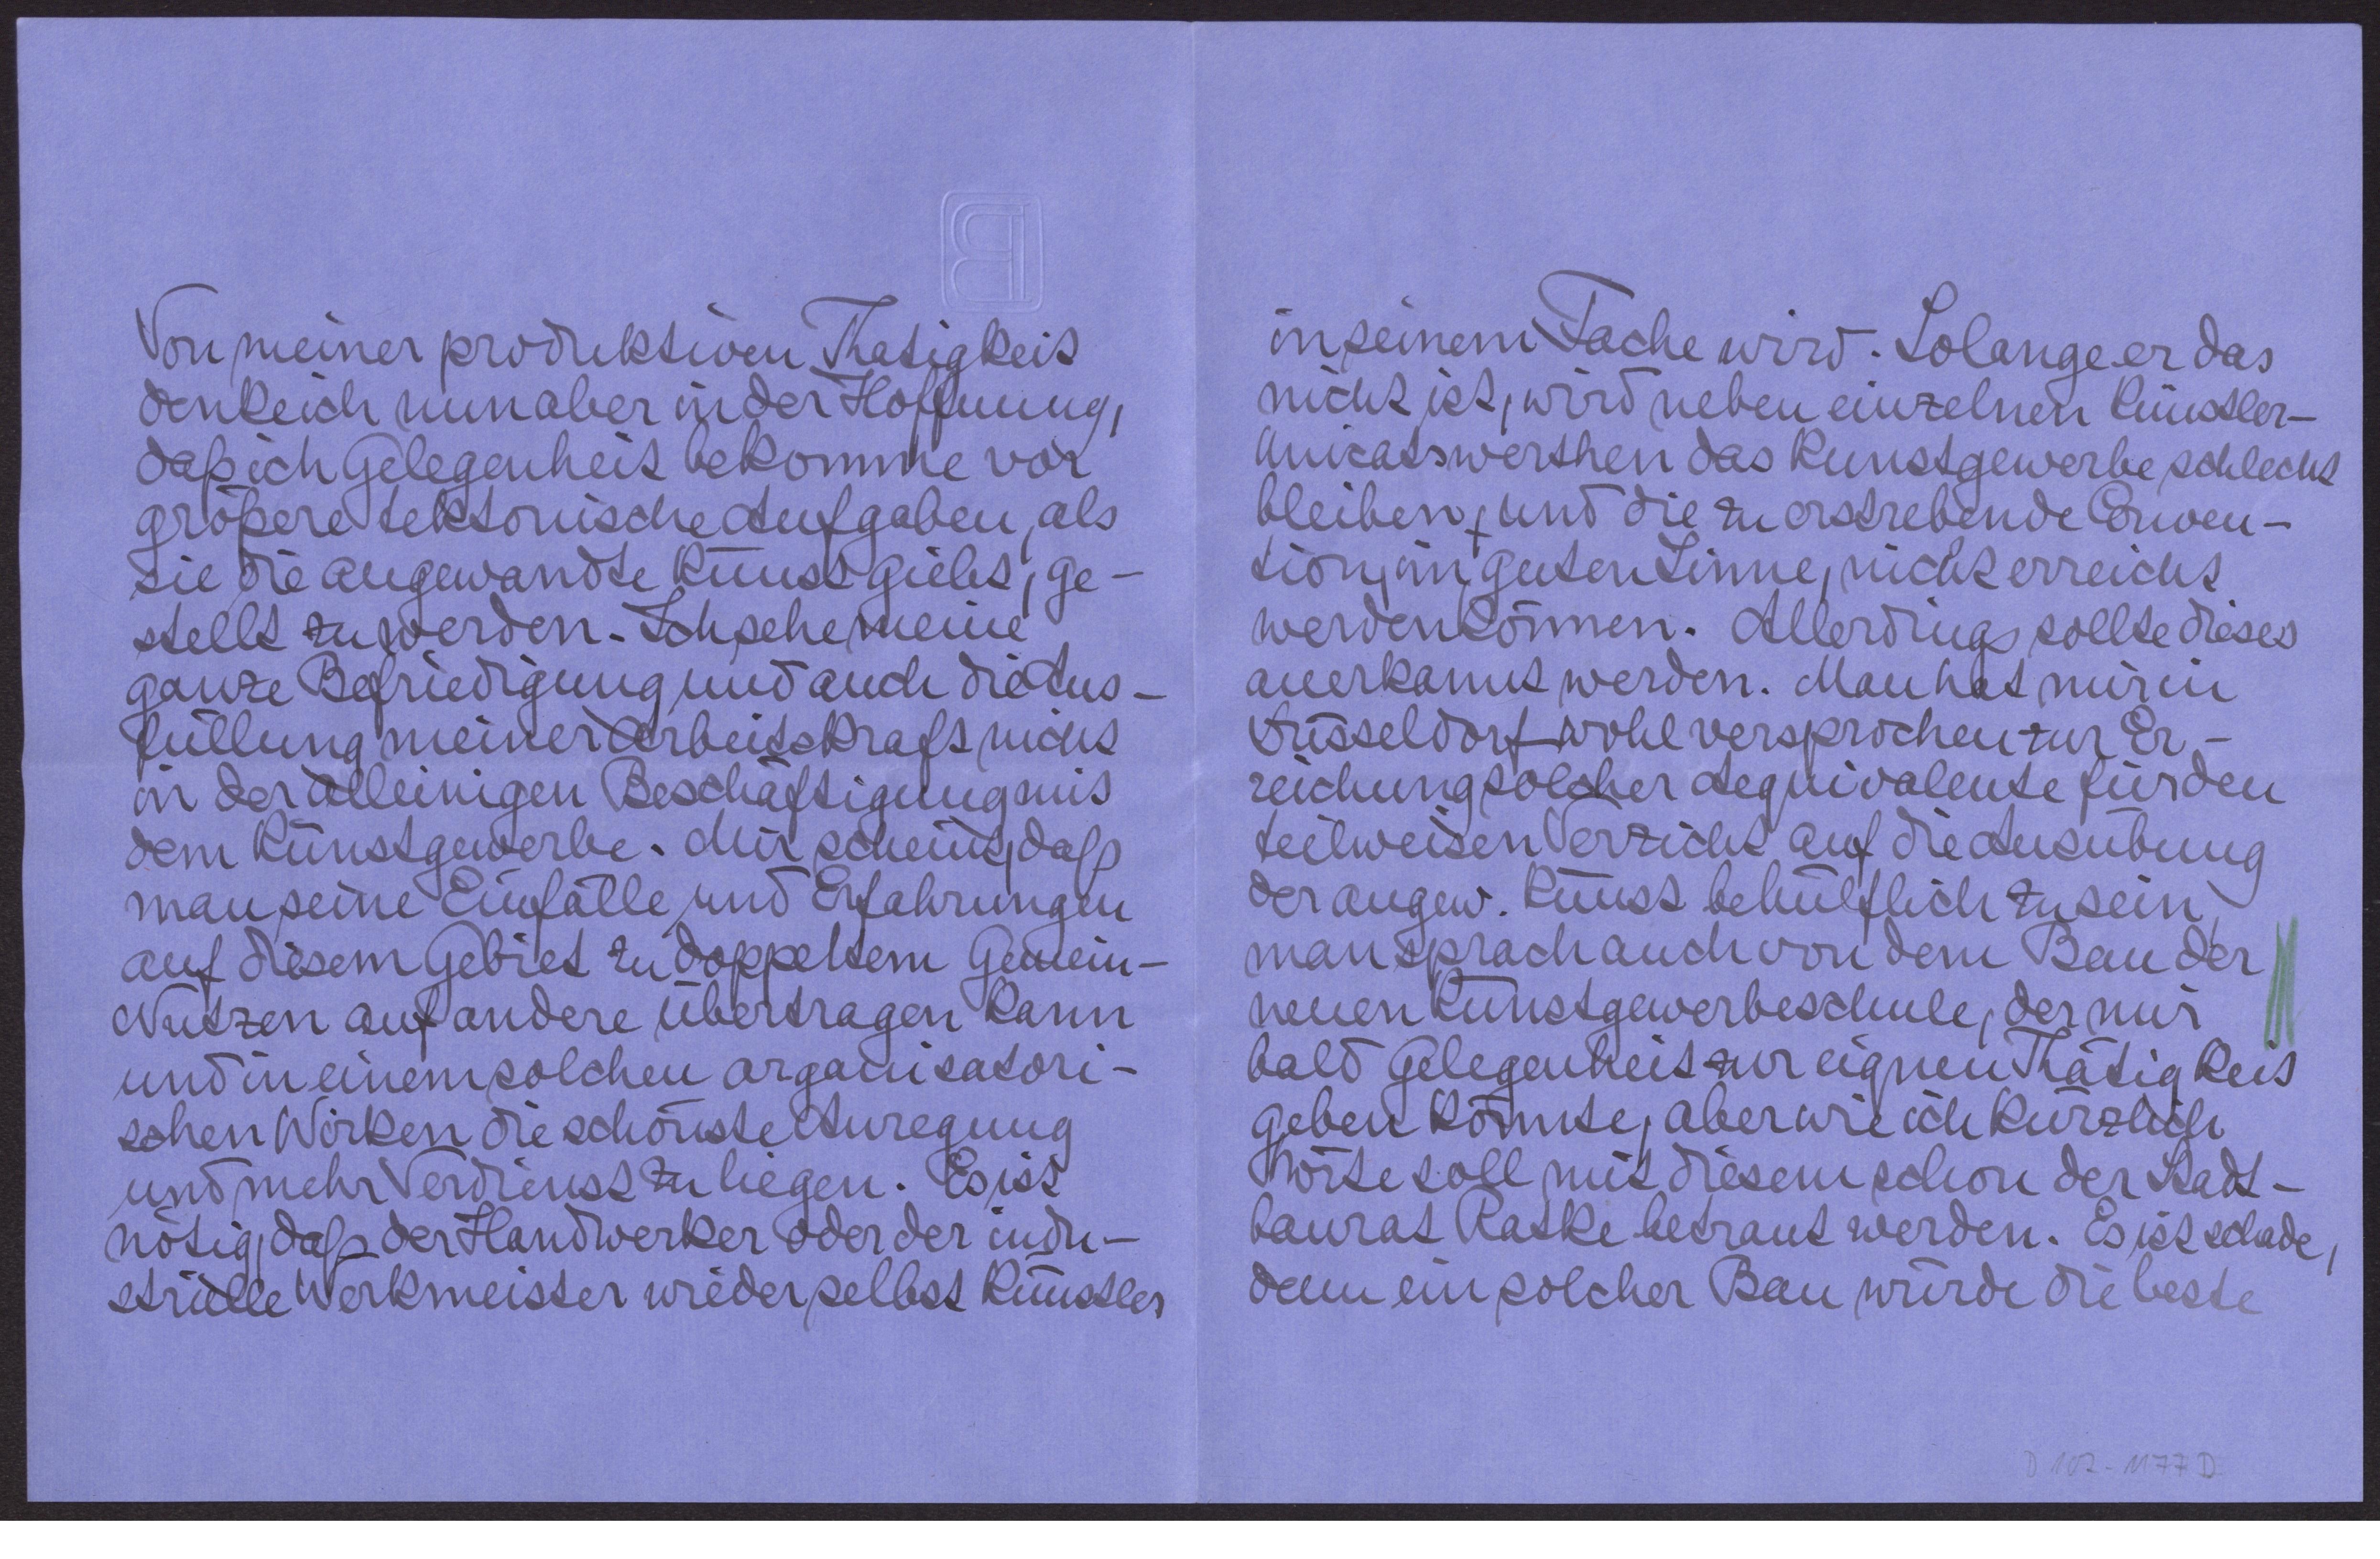 Von meiner produktiven Thätigkeit
denke ich nun aber in der Hoffnung,
daß ich Gelegenheit bekomme vor
größere tektonische Aufgaben, als
sie die angewandte Kunst giebt, ge-
stellt zu werden. Ich sehe meine
ganze Befriedigung und auch die Aus-
füllung meiner Arbeitskraft nicht
in der alleinigen Beschäftigung mit
dem Kunstgewerbe. Mir scheint, daß
man seine Einfälle und Erfahrungen
auf diesem Gebiet zu doppeltem Gemein-
Nutzen auf andere übertragen kann
und in einem solchen organisatori-
schen Wirken die schönste Anregung
und mehr Verdienst zu liegen. Es ist
nötig, daß der Handwerker oder der indu-
strielle Werkmeister wieder selbst Künstler
in seinem Fache wird. Solange er das
nicht ist, wird neben einzelnen Künstler-
Unicatswerthen das Kunstgewerbe schlecht
bleiben, und die zu erstrebende Conven-
tion, im guten Sinne, nicht erreicht
werden können. Allerdings sollte dieses
anerkannt werden. Man hat mir in
Düsseldorf wohl versprochen zur Er-
reichung solcher Aequivalente für den
teilweisen Verzicht auf die Ausübung
der angew. Kunst behülflich zu sein,
man sprach auch von dem Bau der
neuen Kunstgewerbeschule, der mir
bald Gelegenheit zur eignen Thätigkeit
geben könnte, aber wie ich kürzlich
hörte soll mit diesem schon der Stadt-
baurat Ratke betraut werden. Es ist schade,
denn ein solcher Bau würde die beste
D 102-1177 D